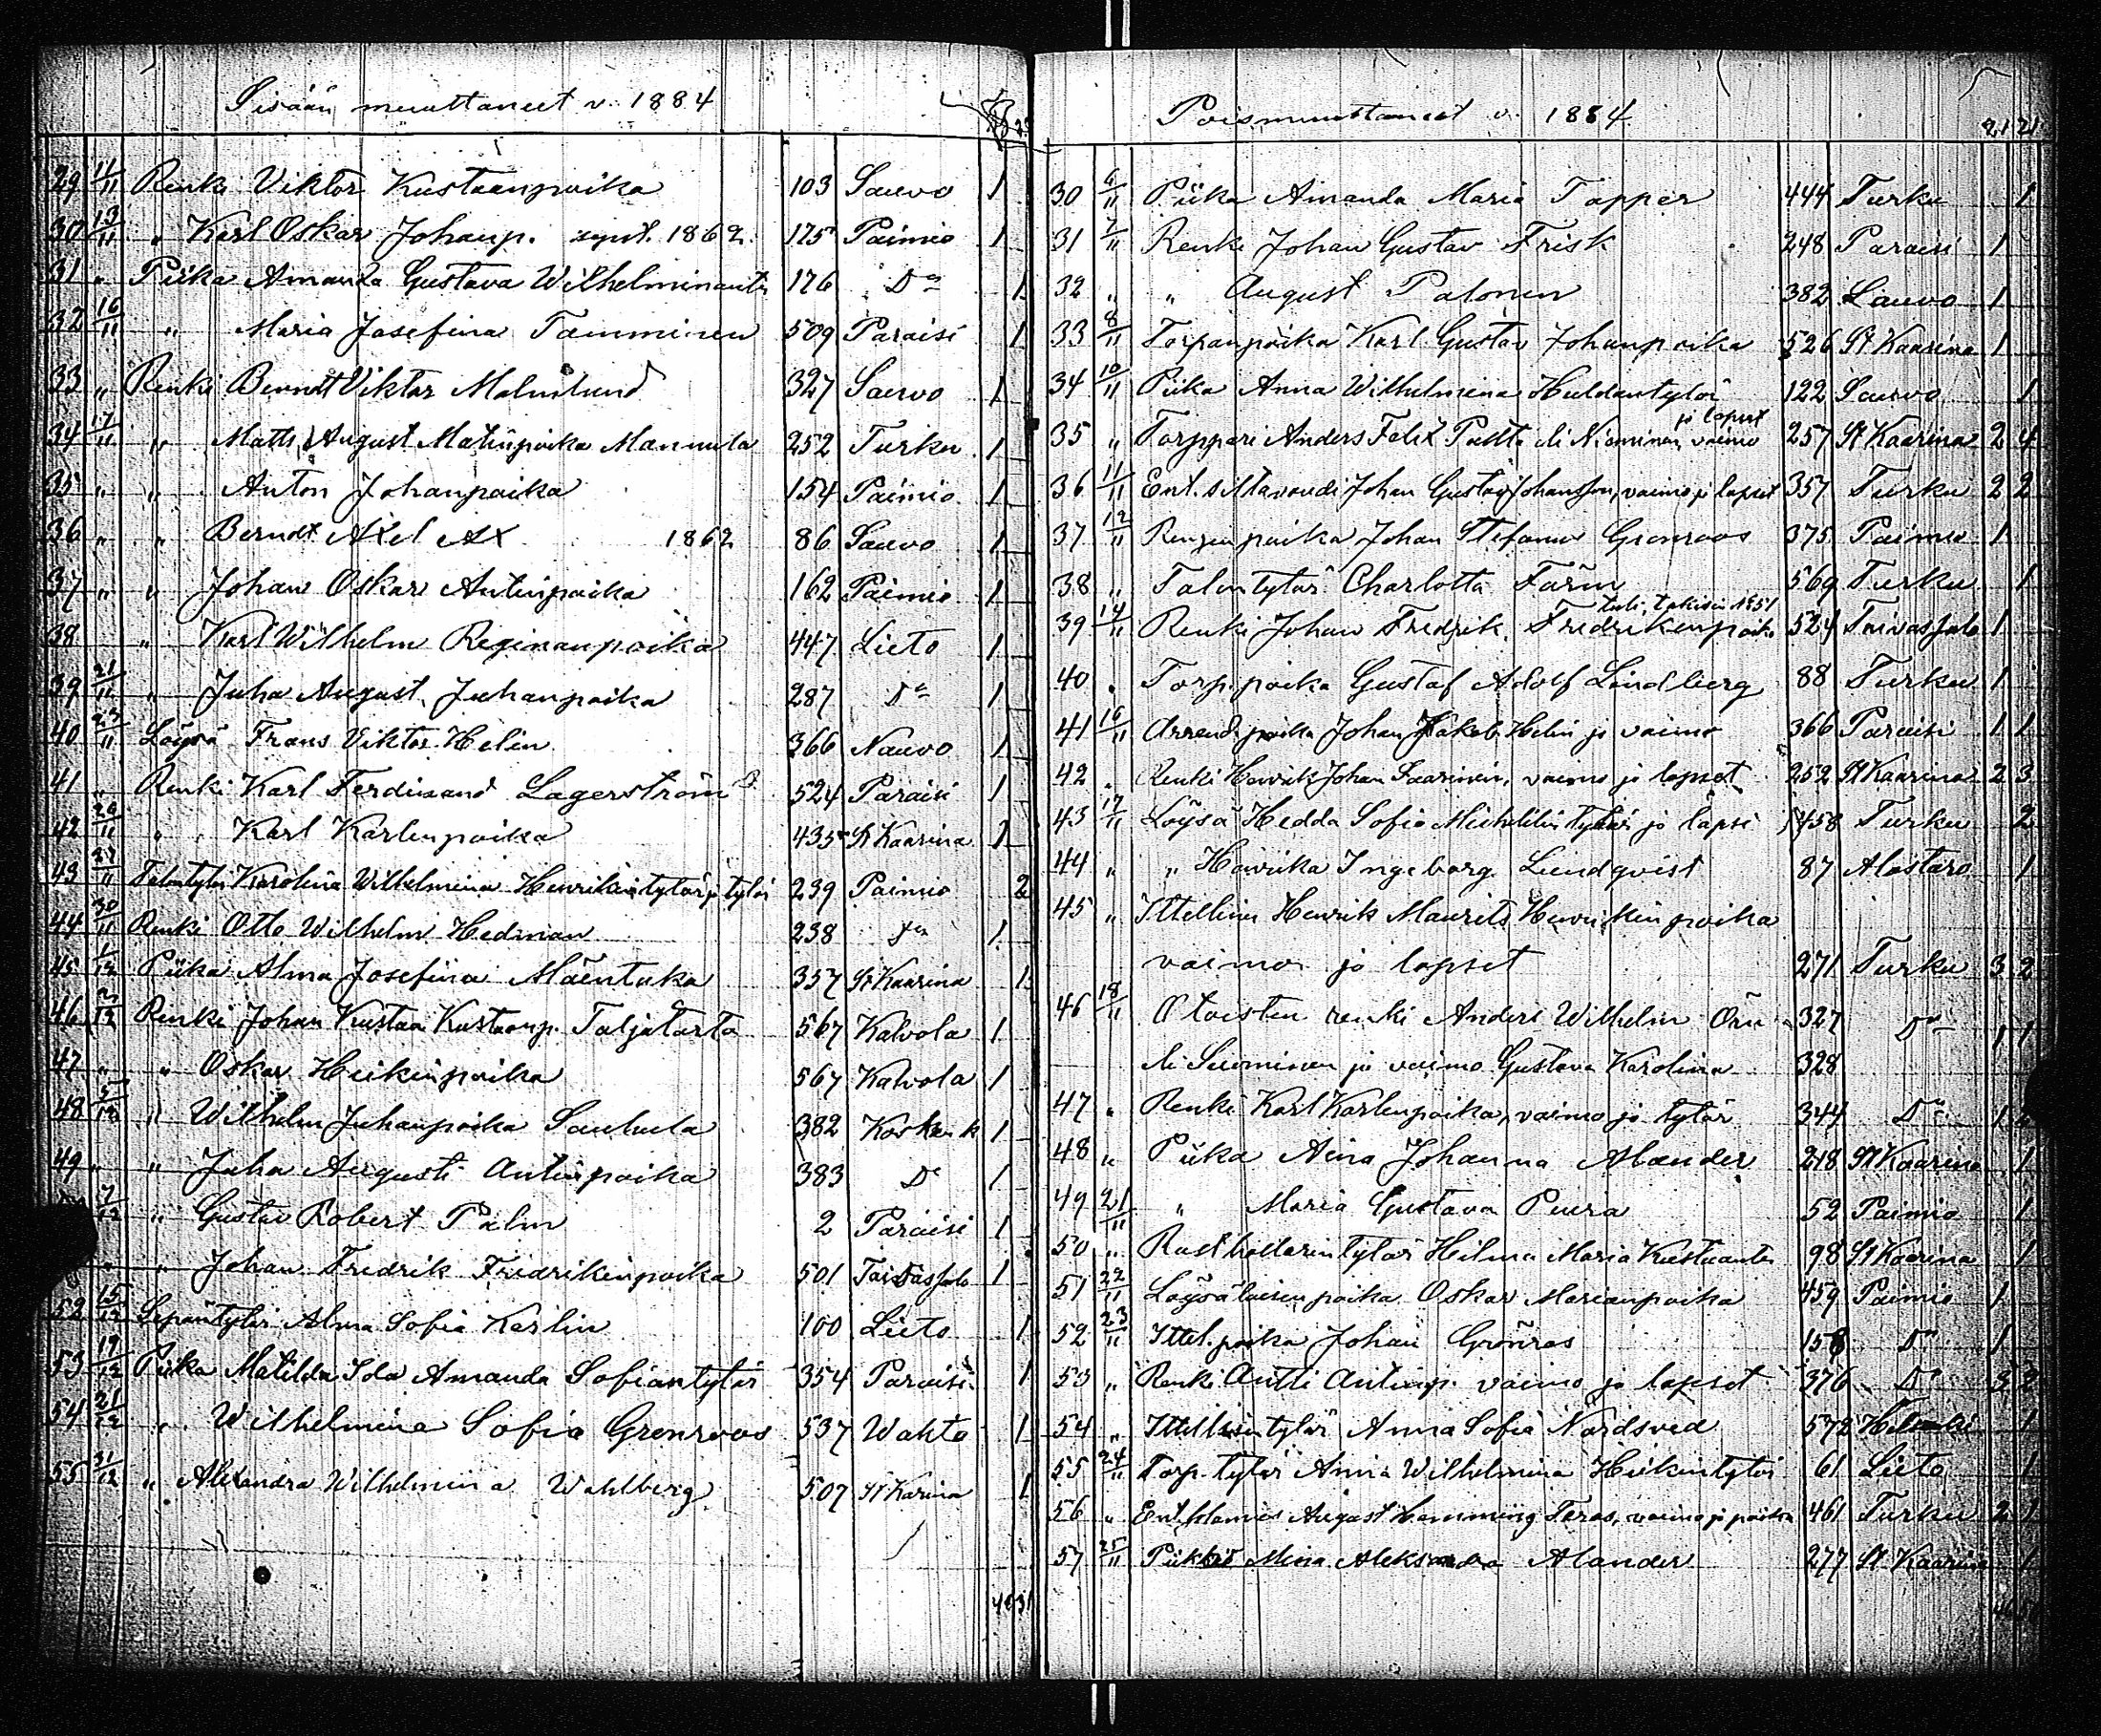 Sisään muuttaneet v. 1884
29 11/11 Renki Viktor Kustaanpoika 103 Sauvo 1
30 13/11 „ Karl Oskar Johanp. synt. 1862. 175 Paimio 1
31 „ Piika Amanda Gustava Wilhelminantr 176 Do 1
32 16/11 „ Maria Josefina Tamminen 509 Paraisi 1
33 „ Renki Berndt Viktor Malmlund 327 Sauvo 1
34 17/11 „ Matts August Matinpoika Mannula 252 Turku 1
35 „ „ Anton Johanpoika 154 Paimio 1
36 „ „ Berndt Axel Ax 1862 86 Sauvo 1
37 „ „ Johan Oskar Antinpoika 162 Paimio 1
38 „ Karl Wilhelm Reginanpoika 447 Lieto 1
39 21/11 „ Juha August Juhanpoika 287 Do 1
40 23/11 Löysä Frans Viktor Helin 366 Nauvo 1
41 „ Renki Karl Ferdinand Lagerström 524 Paraisi 1
42 26/11 „ Karl Karlenpoika 435 St Kaarina 1
43 27/11 Talontytär Karolina Wilhelmina Henrikintytär ja tytär 239 Paimio 2
44 30/11 Renki Otto Wilhelm Hedman 238 Do 1
45 1/12 Piika Alma Josefina Mäentaka 357 St Kaarina 1
46 2/12 Renki Johan Kustaa Kustaanp. Taljatarta 567 Kalvola 1
47 „ „ Oskar Heikinpoika 567 Kalvola 1
48 5/12 „ Wilhelm Juhanpoika Sauhula 382 Kosken k 1
49 „ „ Juha Augusti Antinpoika 383 Do 1
7/12 „ Gustav Robert Palm 2 Paraisi 1
„ „ Johan Fredrik Fredrikinpoika 501 Taivassalo 1
52 15/12 Sepäntytär Alma Sofia Karlin 100 Lieto 1
53 19/12 Piika Matilda Ida Amanda Sofiantytär 354 Paraisi 1
54 21/12 „ Wilhelmina Sofia Grönroos 537 Wahto 1
55 31/12 „ Alexandra Wilhelmina Wahlberg 507 St Karina 1
Poismuuttaneet v. 1884
21 21
30 6/11 Piika Amanda Maria Tapper 444 Turku 1
31 7/11 Renki Johan Gustav Frisk 248 Paraisi 1
32 „ „ August Palonen 382 Sauvo 1
33 8/11 Torpanpoika Karl Gustav Johanpoika 526 St Kaarina 1
34 10/11 Piika Anna Wilhelmina Huldantytär 122 Sauvo 1
ja lapset
35 „ Torppari Anders Felix eli Nieminen, vaimo 257 St Kaarina 2 4
36 11/11 Ent. siltavouti Johan Gustav Johansson, vaimo ja lapset 357 Turku 2 2
37 12/11 Renginpoika Johan Stefanus Grönroos 375 Paimio 1
38 „ Talontytär Charlotta Farm 569 Turku 1
tuli takisin 1851
39 14/11 Renki Johan Fredrik Fredrikinpoika 524 Taivassalo 1
40 „ Torp. poika Gustaf Adolf Lindberg 88 Turku 1
41 16/11 Arrend. poika Johan Jakob Helin ja vaimo 366 Paraisi 1 1
42 „ Renki Henrik Johan Saarinen, vaimo ja lapset 252 St Kaarina 2 3
43 17/11 Löysä Hedda Sofia Mickelintytär ja lapsi 458 Turku 2
44 „ „ Henrika Ingeborg Lindqvist 87 Alastaro 1
45 „ Ittellinen Henrik Maurits Henrikinpoika
vaimo ja lapset 271 Turku 3 2
46 18/11 Oloisten renki Anders Wilhelm Örn 327 Do 1 1
eli Suominen ja vaimo Gustava Karolina 328
47 „ Renki Karl Karlenpoika, vaimo ja tytär 344 Do 1 2
48 „ Piika Aina Johanna Alander 218 St Kaarina 1
49 21/11 „ Maria Gustava Puura 52 Paimio 1
50 „ Rusthollarintytär Hilma Maria Kustaantr 98 St Kaarina 1
51 22/11 Löysäläisen poika Oskar Marianpoika 459 Paimio 1
52 23/11 Ittel. poika Johan Grönros 158 Do 1
53 „ Renki Antti Antinp. vaimo ja lapset 376 Do 3 2
54 „ Ittellisentytär Anna Sofia Nordsved 572 Helsinki 1
55 24/11 Torp. tytär Anna Wilhelmina Heikintytär 61 Lieto 1
56 „ August Hemming Toras, vaimo ja poika 461 Turku 2 1
57 25/11 Piika Mina Aleksandra Alander 277 St Kaarina 1